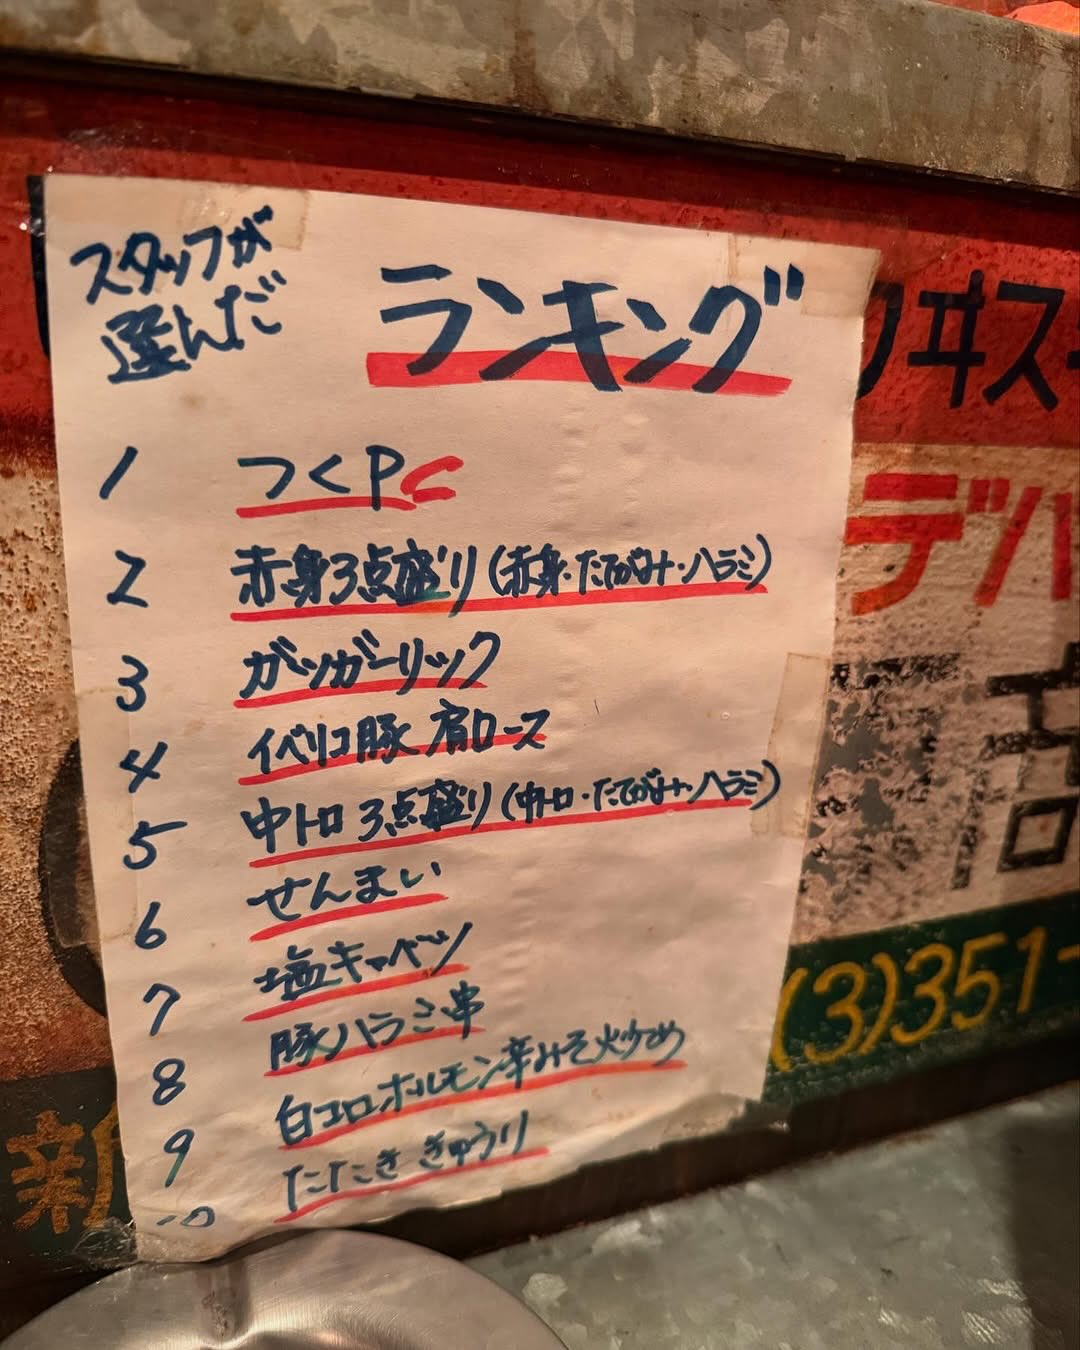 スタッフが
選んだ
ランキング
1 つくPC
2 赤身3点盛り(赤身・たてがみ・ハラミ)
3 ガツガーリック
4 イベリコ豚 肩ロース
5 中トロ3点盛り(中トロ・たてがみ・ハラミ)
6 せんまい
7 塩キャベツ
8 豚ハラミ串
9 白コロホルモン辛みそ炒め
10 たたききゅうり
ヰス
デパ
(3)351-
新